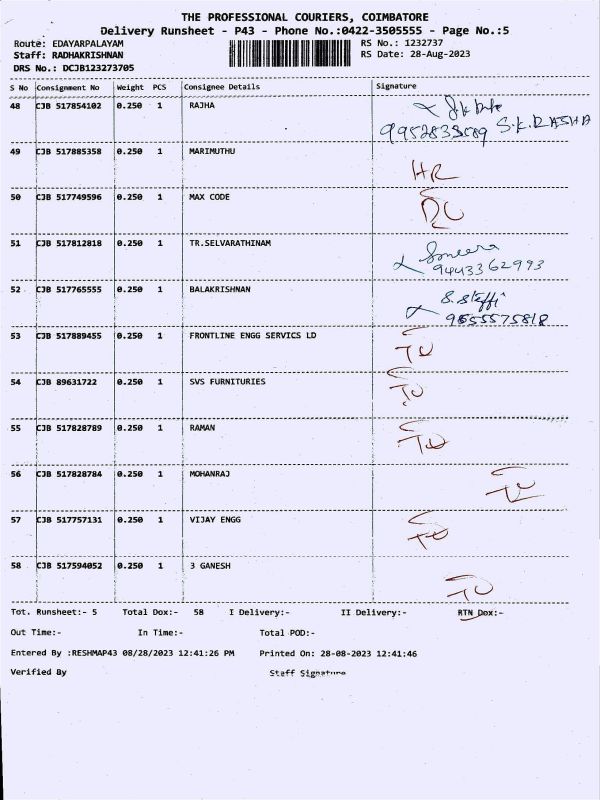 THE PROFESSIONAL COURIERS, COIMBATORE
Delivery Runsheet - P43 - Phone No.:0422-3505555 - Page No.:5
Route: EDAYARPALAYAM RS No.: 1232737
Staff: RADHAKRISHNAN RS Date: 28-Aug-2023
DRS No.: DCJB123273705
S No Consignment No Weight PCS Consignee Details Signature
48 CJB 517854102 0.250 1 RAJHA
9952833589 S.K.RASHA
49 CJB 517885358 0.250 1 MARIMUTHU
HR
50 CJB 517749596 0.250 1 MAX CODE
DC
51 CJB 517812818 0.250 1 TR.SELVARATHINAM
9443362993
52 CJB 517765555 0.250 1 BALAKRISHNAN
S. Steffi
9655575818
53 CJB 517889455 0.250 1 FRONTLINE ENGG SERVICS LD
54 CJB 89631722 0.250 1 SVS FURNITURIES
55 CJB 517828789 0.250 1 RAMAN
56 CJB 517828784 0.250 1 MOHANRAJ
57 CJB 517757131 0.250 1 VIJAY ENGG
58 CJB 517594052 0.250 1 3 GANESH
Tot. Runsheet:- 5 Total Dox:- 58 I Delivery:- II Delivery:- RTN Dox:-
Out Time:- In Time:- Total POD:-
Entered By :RESHMAP43 08/28/2023 12:41:26 PM Printed On: 28-08-2023 12:41:46
Verified By Staff Signature